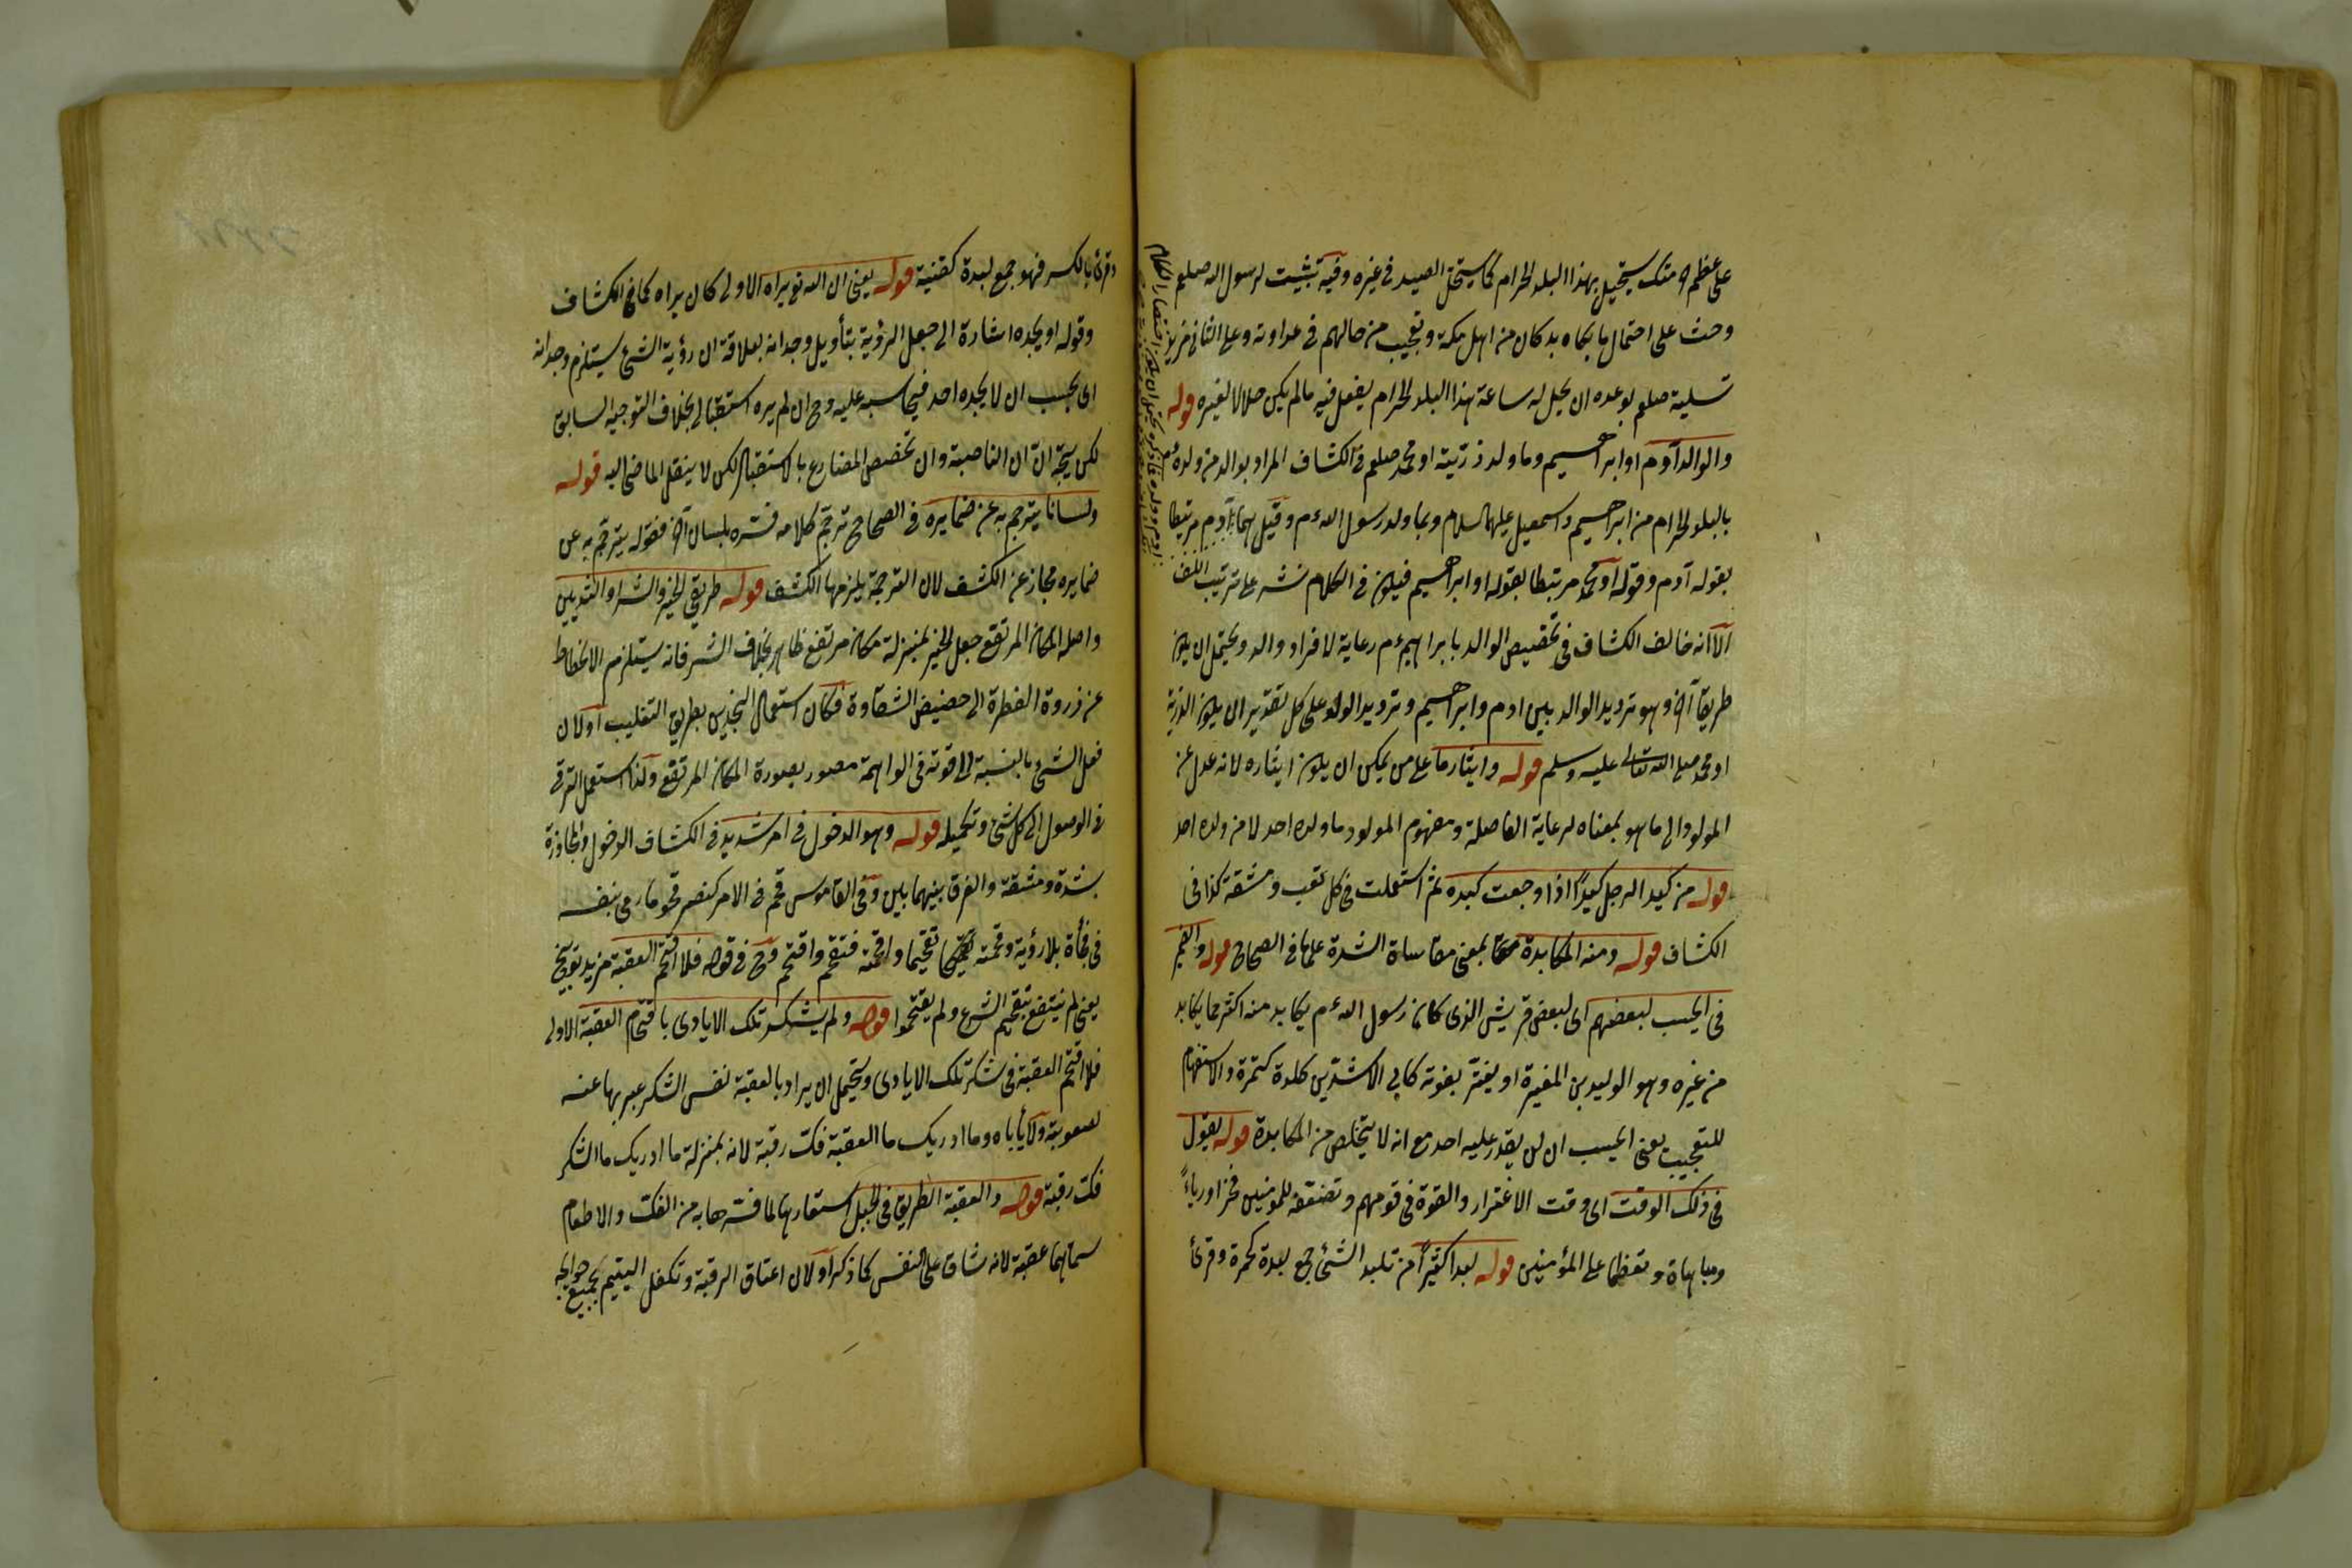 على عظم مثلك يستحل بهذا البلد الحرام كما يستحل الصيد في غيره وفيه تثبيت لرسول الله صلعم
وحث على احتمال ما يكابد كان من اهل مكة وتعجيب من حالهم في عداوته وعلى الثاني
تسلية صلعم بوعده ان يحل له ساعة هذا البلد الحرام يفعل فيه ما لم يكن حلالا لغيره قوله
والوالد آدم او ابراهيم وما ولد ذريته او محمد صلعم في الكشاف المراد بوالد من ولده
بالبلد الحرام من ابراهيم واسمعيل عليهما السلام وبما ولد رسول الله عم وقيل هما آدم مرتبطا
بقوله آدم وقوله او محمد مرتبطا بقوله او ابراهيم فيكون في الكلام نشر على ترتيب اللف
الا انه خالف الكشاف في تخصيص الوالد بابراهيم عم رعاية لافراد والد ويحتمل ان يكون
طريقا آخر وهو ترديد الوالد بين ادم وابراهيم وترديد الولد على كل تقدير ان يكون الذرية
او محمد صلى الله تعالى عليه وسلم قوله وايثار ما على من يمكن ان يكون ايثاره لانه عدل عن
المولود الى ما هو بمعناه لرعاية الفاصلة ومفهوم المولود ما ولده احد لا من ولده احد
قوله من كبد الرجل كبدا اذا وجعت كبده ثم استعملت في كل تعب ومشقة كذا في
الكشاف قوله ومنه المكابدة بمعنى مقاساة الشدة على ما في الصحاح قوله والضمير
في ايحسب لبعضهم اى لبعض قريش الذى كان رسول الله عم يكابد منه اكثر مما يكابد
من غيره وهو الوليد بن المغيرة او يغتر بقوته كابى الاشدين كلدة كتمرة والاستفهام
للتعجيب يعنى ايحسب ان لن يقدر عليه احد مع انه لا يتخلص من المكابدة قوله يقول
في ذلك الوقت اى وقت الاغترار والقوة في قومهم وتضعفه للمؤمنين فخرا ورياءً
ومباهاة وتعظما على المؤمنين قوله لبدا كثيرًا من تلبد الشئ جمع لبدة كحجرة وقرئ
وقرئ بالكسر فهو جمع لبدة كقنية قوله يعنى ان الله تع يراه الاولى كان يراه كما في الكشاف
وقوله او يجده اشارة الى جعل الرؤية بتأويل وجدانه بعلاقة ان رؤية الشئ يستلزم وجدانه
اى يحسب ان لا يجده احد فيحاسبه عليه وح ان لم يره استقبالى بخلاف التوجيه السابق
لكن يتجه ان ان الناصبة وان تخصص المضارع بالاستقبال لكن لا ينقل الماضى اليه قوله
ولسانا يترجم به عن ضمايره في الصحاح ترجم كلامه فسره بلسان آخر فقوله يترجم به عن
ضمايره مجاز عن الكشف لان الترجمة يلزمها الكشف قوله طريقى الخير والشر او الثديين
واصله المكان المرتفع جعل الخير بمنزلة مكان مرتفع ظاهر بخلاف الشر فانه يستلزم الانحطاط
عن ذروة الفطرة الى حضيض الشقاوة فكان استعمال النجدين بطريق التغليب او لان
فعل الشئ بالنسبة الى قوته في الواهمة مصور بصورة المكان المرتفع ولذا استعمل الترقى
في الوصول الى كل شئ وتكميله قوله وهو الدخول في امر شديد في الكشاف الدخول والمجاوزة
بشدة ومشقة والفرق بينهما بين وفي القاموس قحم في الامر كنصر قحوما رمى بنفسه
في فجأة بلا رؤية وقحمه تقحيما واقحمه فتقحم واقتحم وح في قوله فلا اقتحم العقبة مزيد توبيخ
يعنى لم ينتفع بتقحيم الشرع ولم يقتحموا قوله ولم يشكر تلك الايادى باقتحام العقبة الاولى
فلا اقتحم العقبة في شكر تلك الايادى ويحتمل ان يراد بالعقبة نفس الشكر عبر بها عنه
لصعوبته ولا يأباه وما ادريك ما العقبة فك رقبة لانه بمنزلة ما ادريك ما الشكر
فك رقبة قوله والعقبة الطريق في الجبل استعارها لما فسرها به من الفك والاطعام
سماهما عقبة لانه شاق على النفس كما ذكر او لان اعتاق الرقبة وتكفل اليتيم بجميع حوايجه